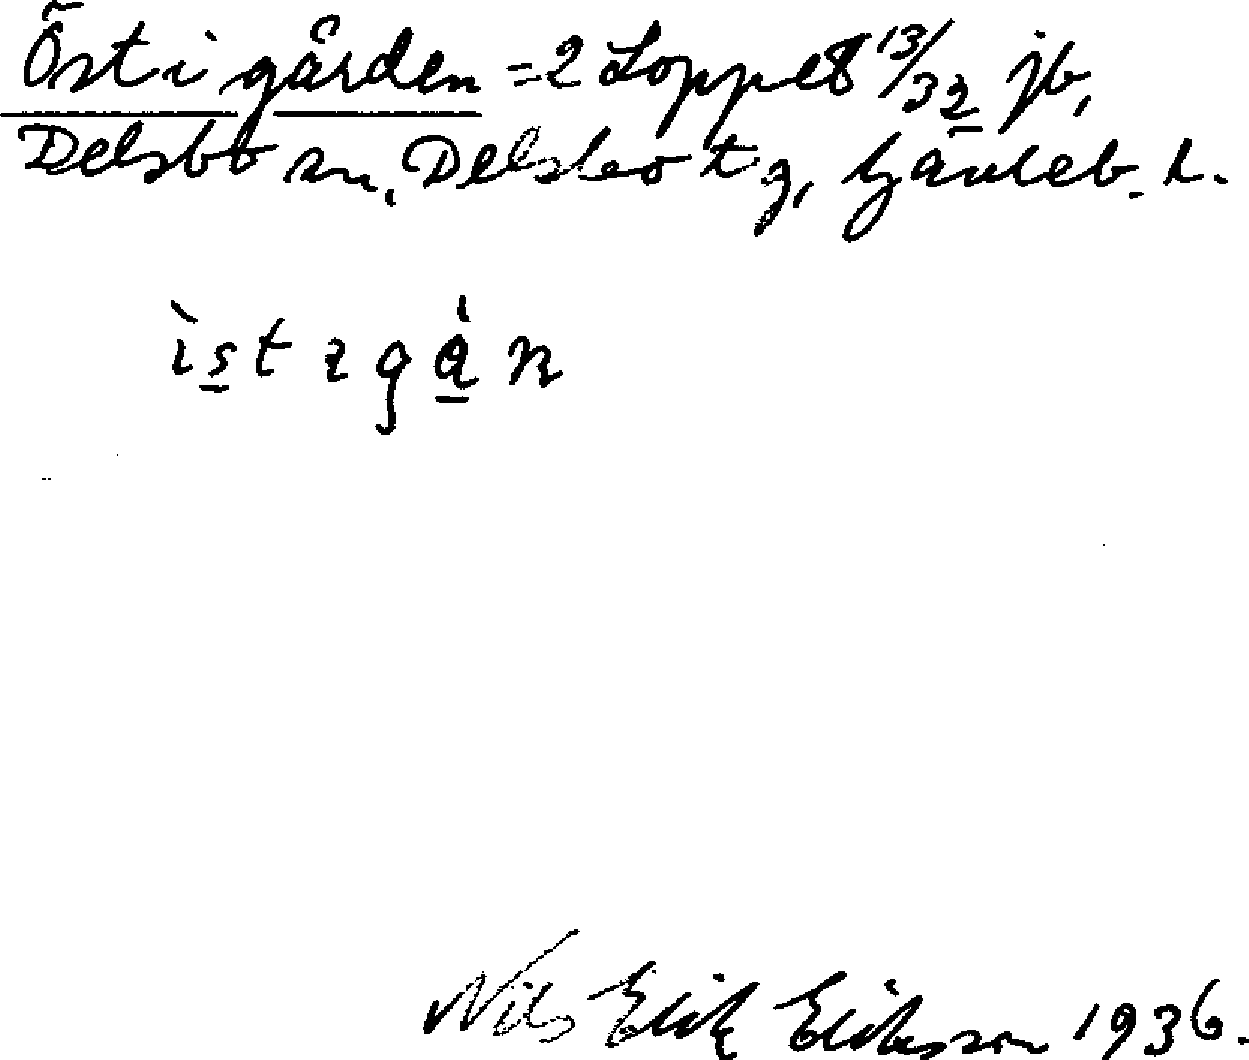 Öst i gården = 2 Loppet 8 13/32 jb,
Delsbo sn, Delsbo tg, Gävleb. l.
Nils Erik Eriksson 1936.